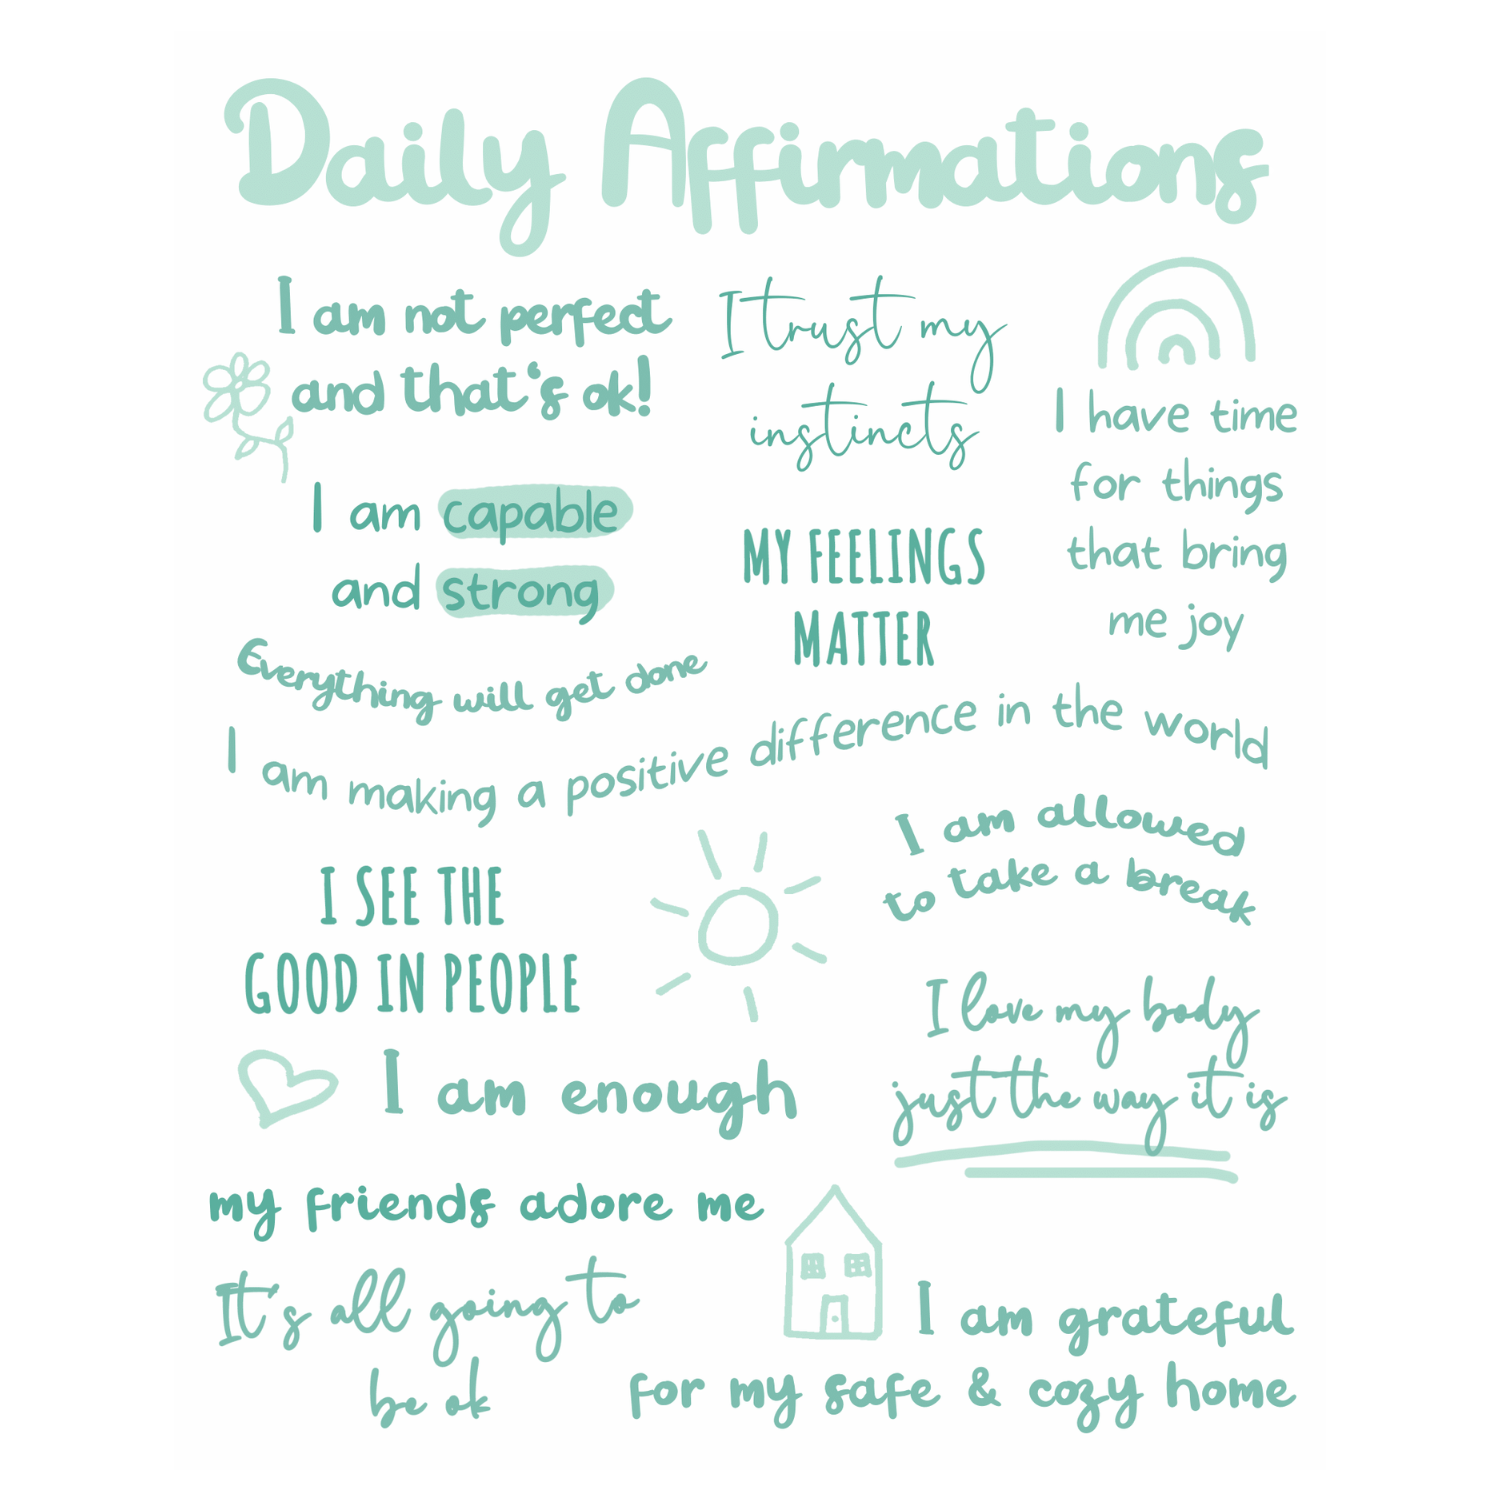 Daily Affirmations
I am not perfect
and that's ok!
I trust my
instincts
I have time
for things
that bring
me joy
I am capable
and strong
MY FEELINGS
MATTER
Everything will get done
I am making a positive difference in the world
I am allowed
to take a break
I SEE THE
GOOD IN PEOPLE
I love my body
just the way it is
I am enough
my friends adore me
It's all going to
be ok
I am grateful
for my safe & cozy home